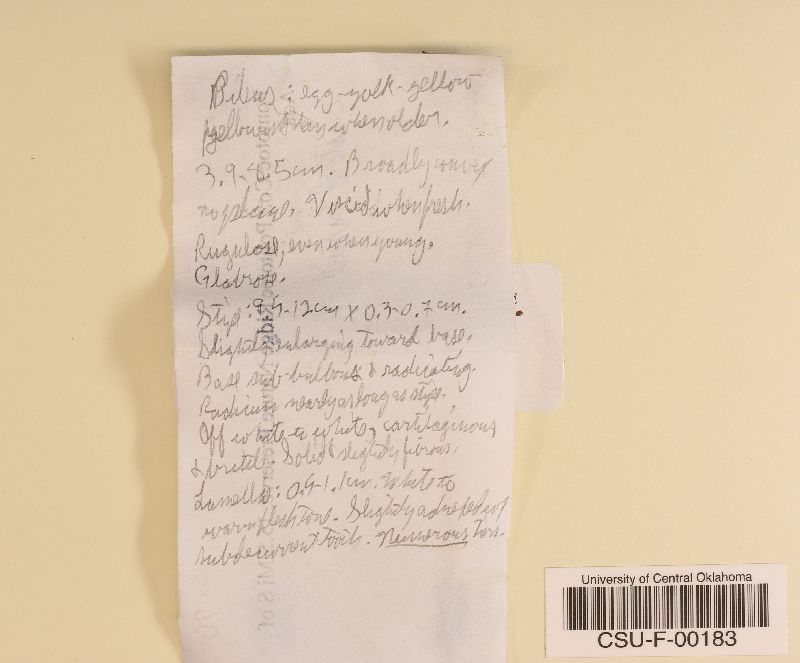 Pileus: egg-yolk-yellow
yellowish tan when older.
3.9-8.5cm. Broadly convex
to plane. Viscid when fresh.
Rugulose, even when young.
Glabrose.
Stip: 9.5-12cm x 0.3-0.7cm.
Slightly enlarging toward base.
Base sub-bulbous & radicating.
nearly as long as stipe.
Off white to white, cartilaginous
& brittle. Solid & slightly fibrous.
Lamellae: 0.9-1.1cm. White to
warm flesh tone. Slightly adnexed w/
subdecurrent tooth. Numerous
University of Central Oklahoma
CSU-F-00183